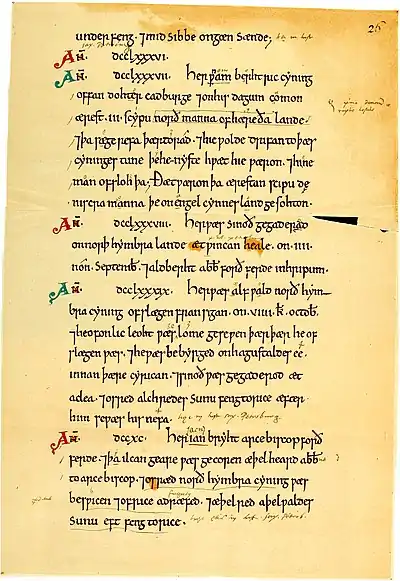 26
underfeng. ⁊ mid sibbe ongæn sænde;
AN̄. DCCLXXXVI.
AN̄. DCCLXXXVII. Her nam berhtric cyning
offan dohter eadburge ⁊ on his dagum comon
ærest .iii. scypu norð manna of hæreða lande
⁊ þa se gerefa þær to rad. ⁊ he ƿolde drifan to þæs
cyninges tune þe he nyste hƿæt hie ƿæron. ⁊ hine
man ofsloh þa; Ðæt ƿæron þa ærestan scipu de
niscra manna þe on engel cynnes land gesohton.
AN̄. DCCLXXXVIII. Her ƿæs sinoð gegaderad
on norþ hymbra lande æt pincan heale. on .iiii.
noñ. Septemb̄. ⁊ aldberht abb̄ forð ferde in hripum.
AN̄. DCCLXXXIX. Her ƿæs alfƿald norð hym
bra cyning ofslægen fram sigan. on .viiii. k̄. octob̄.
⁊ heofonlic leoht ƿæs lome geseƿen þær þær he of
slægen ƿæs. ⁊ he ƿæs bebyrged on hagustaldes ee
innan þære cyrican. ⁊ sinoð ƿæs gegaderod æt
aclea. ⁊ osred alchredes sunu feng to rice æfter
him se ƿæs his nefa.
AN̄. DCCXC. Her ianbryht arcebiscop forð
ferde. ⁊ þa ilcan geare ƿæs gecoren æþelheard abb̄
to arcebiscop. ⁊ osred norð hymbra cyning ƿæs
besƿicen ⁊ of rice adræfed. ⁊ æþelred aþelƿaldes
sunu eft feng to rice.